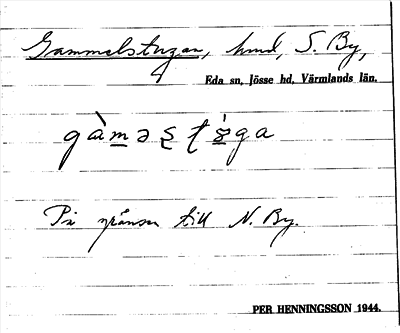 Gammelstugan, hmd, S. By,
Eda sn, Jösse hd, Värmlands län.
gàməstǿga
På gränsen till N. By.
PER HENNINGSSON 1944.